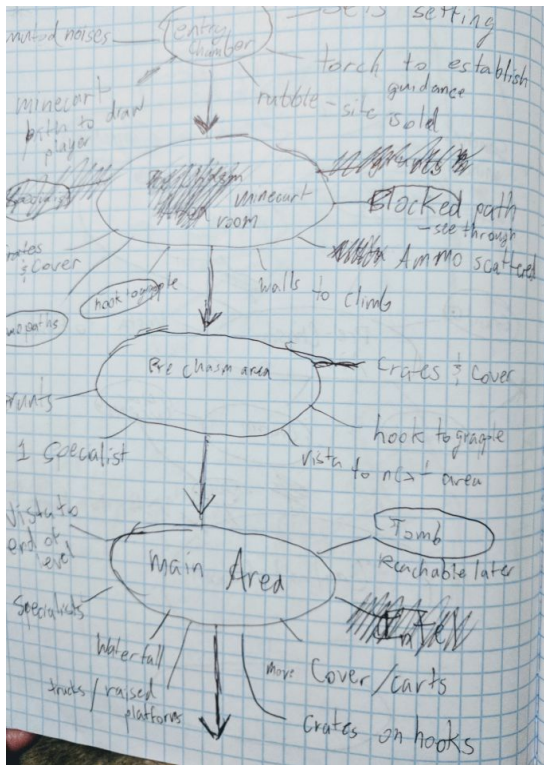 setting
muted noises
entry
chamber
torch to establish
guidance
minecart
path to draw
player
rubble - site
is old
minecart
room
Blocked path
- see through
& Cover
Ammo scattered
hook to grapple
walls to climb
paths
Pre chasm area
crates & cover
hook to grapple
1 Specialist
vista to next area
Vista to
end of
level
Tomb
Reachable later
Main Area
Specialists
Waterfall
trucks / raised
platforms
move Cover/carts
Crates on hooks